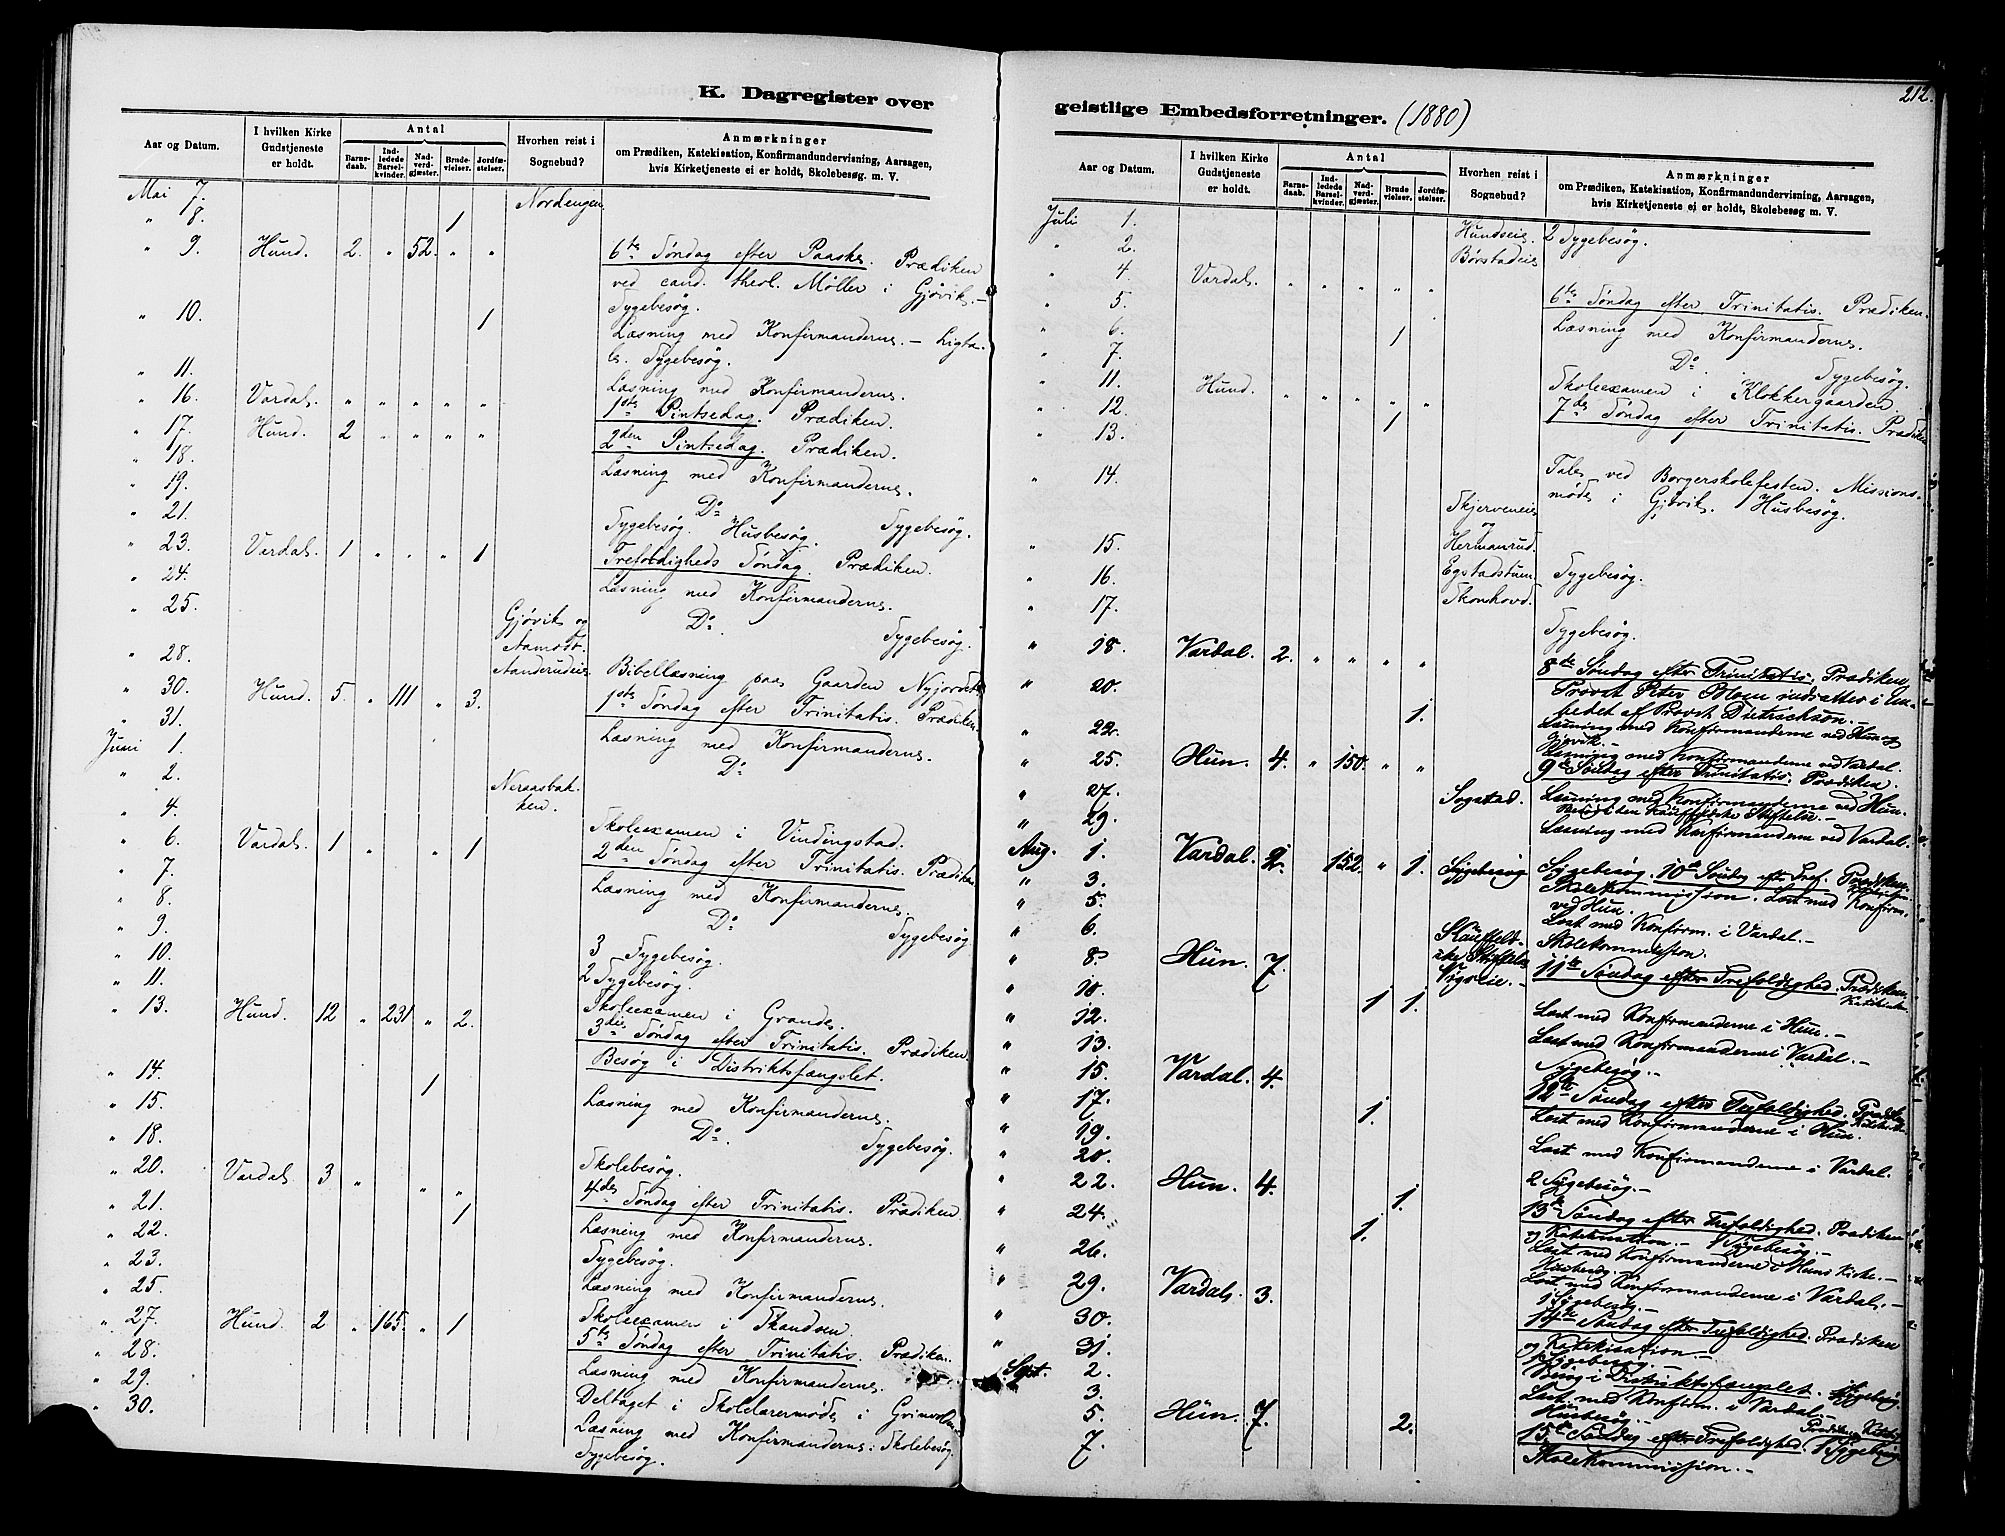 K. Dagregister over
Aar og Datum.
I hvilken Kirke Gudstjeneste er holdt.
Antal
Barnedaab.
Indledede Barselkvinder.
Nadverdgjæster.
Brudevielser.
Jordfæstelser.
Hvorhen reist i Sognebud?
Anmærkninger
om Prædiken, Katekisation, Konfirmandundervisning, Aarsagen,
hvis Kirketjeneste ei er holdt, Skolebesøg. m. V.
Mai 7. Nordengen
" 8. 1
" 9. Hund. 2. " 52. " " 6te Søndag efter Paaske. Prædiken
ved cand. theol. Møller i Gjøvik.-
Sygebesøg.
" 10. 1 Læsning med Konfirmanderne. - Ligta-
le. Sygebesøg.
" 11. Læsning med Konfirmanderne.
" 16. Vardal. " " " " " 1ste Pintsedag. Prædiken.
" 17. Hund. 2 " " " " 2den Pintsedag. Prædiken.
" 18. Læsning med Konfirmanderne.
" 19. Do Sygebesøg.
" 21. Sygebesøg. Husbesøg.
" 23. Vardal. 1 " " " 1 Trefoldigheds Søndag. Prædiken.
" 24. Læsning med Konfirmanderne.
" 25. Gjøvik og Aamodt. Do. Sygebesøg.
" 28. Aanderudeie Bibellæsning paa Gaarden Nyjordet
" 30. Hund. 5 " 111 " 3. 1ste Søndag efter Trinitatis. Prædiken
" 31. Læsning med Konfirmanderne.
Juni 1. Do
" 2. Neraasbak-
ken.
" 4. Skoleexamen i Vindingstad.
" 6. Vardal. 1 " " 1 2den Søndag efter Trinitatis. Prædiken
" 7. Læsning med Konfirmanderne.
" 8. Do Sygebesøg
" 9. 3 Sygebesøg.
" 10. 2 Sygebesøg.
" 11. Skoleexamen i Grande.
" 13. Hund. 12 " 231 " 2. 3die Søndag efter Trinitatis. Prædiken.
Besøg i Distriktsfængslet.
" 14. 1 Læsning med Konfirmanderne.
" 15. Do. Sygebesøg.
" 18. Skolebesøg.
" 20. Vardal. 3 " " " 4de Søndag efter Trinitatis. Prædiken.
" 21. 1 Læsning med Konfirmanderne.
" 22. Sygebesøg.
" 23. Læsning med Konfirmanderne.
" 25. Skoleexamen i Skandsen.
" 27. Hund. 2 " 165. " 1 5te Søndag efter Trinitatis. Prædiken.
" 28. Læsning med Konfirmanderne.
" 29. Deltaget i Skolelærermøde i
" 30. Læsning med Konfirmanderne. Skolebesøg.
Sygebesøg.
212.
geistlige Embedsforretninger. (1880)
Aar og Datum.
I hvilken Kirke Gudstjeneste er holdt.
Antal
Barnedaab.
Indledede Barselkvinder.
Nadverdgjæster.
Brudevielser.
Jordfæstelser.
Hvorhen reist i Sognebud?
Anmærkninger
om Prædiken, Katekisation, Konfirmandundervisning, Aarsagen,
hvis Kirketjeneste ei er holdt, Skolebesøg m. V.
Juli 1. Hundseie. 2 Sygebesøg.
" 2. Børstadeie
" 4. Vardal. " " " " " 6te Søndag efter Trinitatis. Prædiken.
" 5. Læsning med Konfirmanderne.
" 6. 1 Do. Sygebesøg.
" 7. Skoleexamen i Klokkergaarden
" 11. Hund. " " " " " 7de Søndag efter Trinitatis. Prædiken
" 12. 1
" 13. Tale ved Borgerskolefesten. Missions-
møde i Gjøvik. Husbesøg.
" 14. Skjerveneie
og
Hermanrud.
" 15. Egstadstuen. Sygebesøg.
" 16. Skonhovd.
" 17. Sygebesøg.
" 18. Vardal. 2. " " " " 8de Søndag efter Trinitatis. Prædiken
Provst Peter Blom indsattes i Em-
bedet af Provst Dietrichson.-
" 20. 1. Læsning med Konfirmanderne ved Hun og
Gjøvik.-
" 22. Læsning med Konfirmanderne ved Vardal.
" 25. Hun. 4. " 150. " " 9de Søndag efter Trinitatis. Prædiken.
" 27. Sogstad. Læsning med Konfirmanderne ved Hun.
Stiftelse.-
" 29. Læsning med Konfirmanderne ved Vardal.
Aug. 1. Vardal. 2. 152. " 1. Sygebesøg Sygebesøg. 10de Søndag eft. Tref. Prædiken.
" 3. Skolekommission. Læst med Konfirm.
ved Hun.
" 5. Læst med Konfirm. i Vardal.-
" 6. Skolekommission.
" 8. Hun. 7. 11te Søndag efter Trefoldighed. Prædiken.
" 10. 1 1. Læst med Konfirmanderne i Hun.-
" 12. Læst med Konfirmanderne i Vardal.-
" 13. Sygebesøg.-
" 15. Vardal. 4. 12te Søndag efter Trefoldighed.
" 17. 1. Læst med Konfirmanderne i Hun.
" 19. Læst med Konfirmanderne i Vardal.
" 20. 2 Sygebesøg.-
" 22. Hun. 4. 1. 13de Søndag efter Trefoldighed. Prædiken
og Katekisation.- 1 Sygebesøg.-
" 24. 1. Læst med Konfirmanderne i Huns Kirke.-
Husbesøg.-
" 26. Læst med Konfirmanderne i Vardal.-
1 Sygebesøg.-
" 29. Vardal. 3. 14de Søndag efter Trefoldighed. Prædiken
og Katekisation.-
" 30. Sygebesøg.-
" 31. Besøg i Distriktsfængslet. Sygebesøg.
Sept. 2. Læst med Konfirm. i Vardal.-
" 3. Husbesøg.-
" 5. Hun. 7. 2. 15de Søndag efter Trefoldighed. 1 Sygebesøg.
" 7. Skolekommission.-